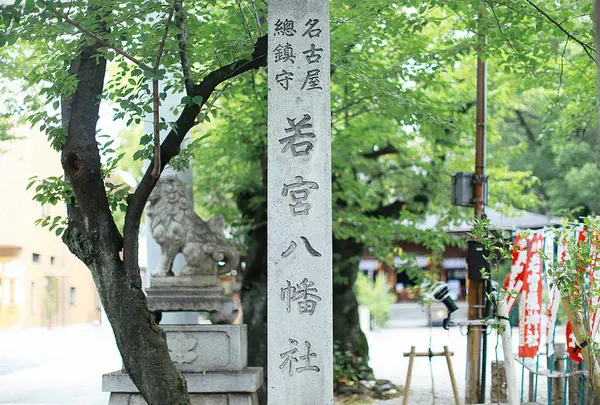 名古屋
總鎮守
若宮八幡社